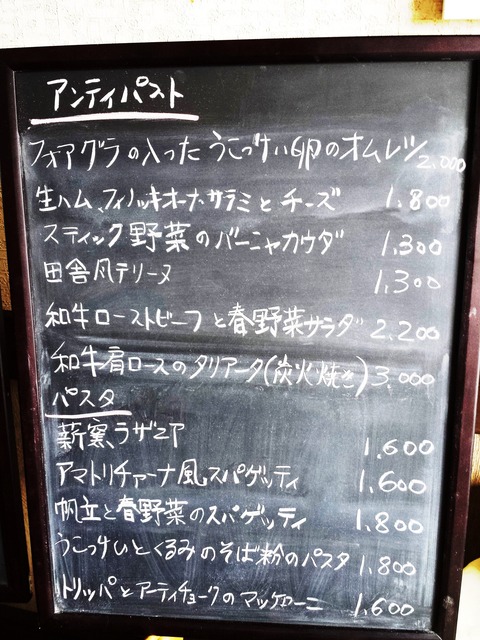 アンティパスト
フォアグラの入ったうこっけい卵のオムレツ 2,000
生ハム、フィノッキオーナ、サラミとチーズ 1,800
スティック野菜のバーニャカウダ 1,300
田舎風テリーヌ 1,300
和牛ローストビーフと春野菜サラダ 2,200
和牛肩ロースのタリアータ(炭火焼き) 3,000
パスタ
薪窯ラザニア 1,600
アマトリチャーナ風スパゲッティ 1,600
帆立と春野菜のスパゲッティ 1,800
うこっけいとくるみのそば粉のパスタ 1,800
トリッパとアーティチョークのマッケローニ 1,600